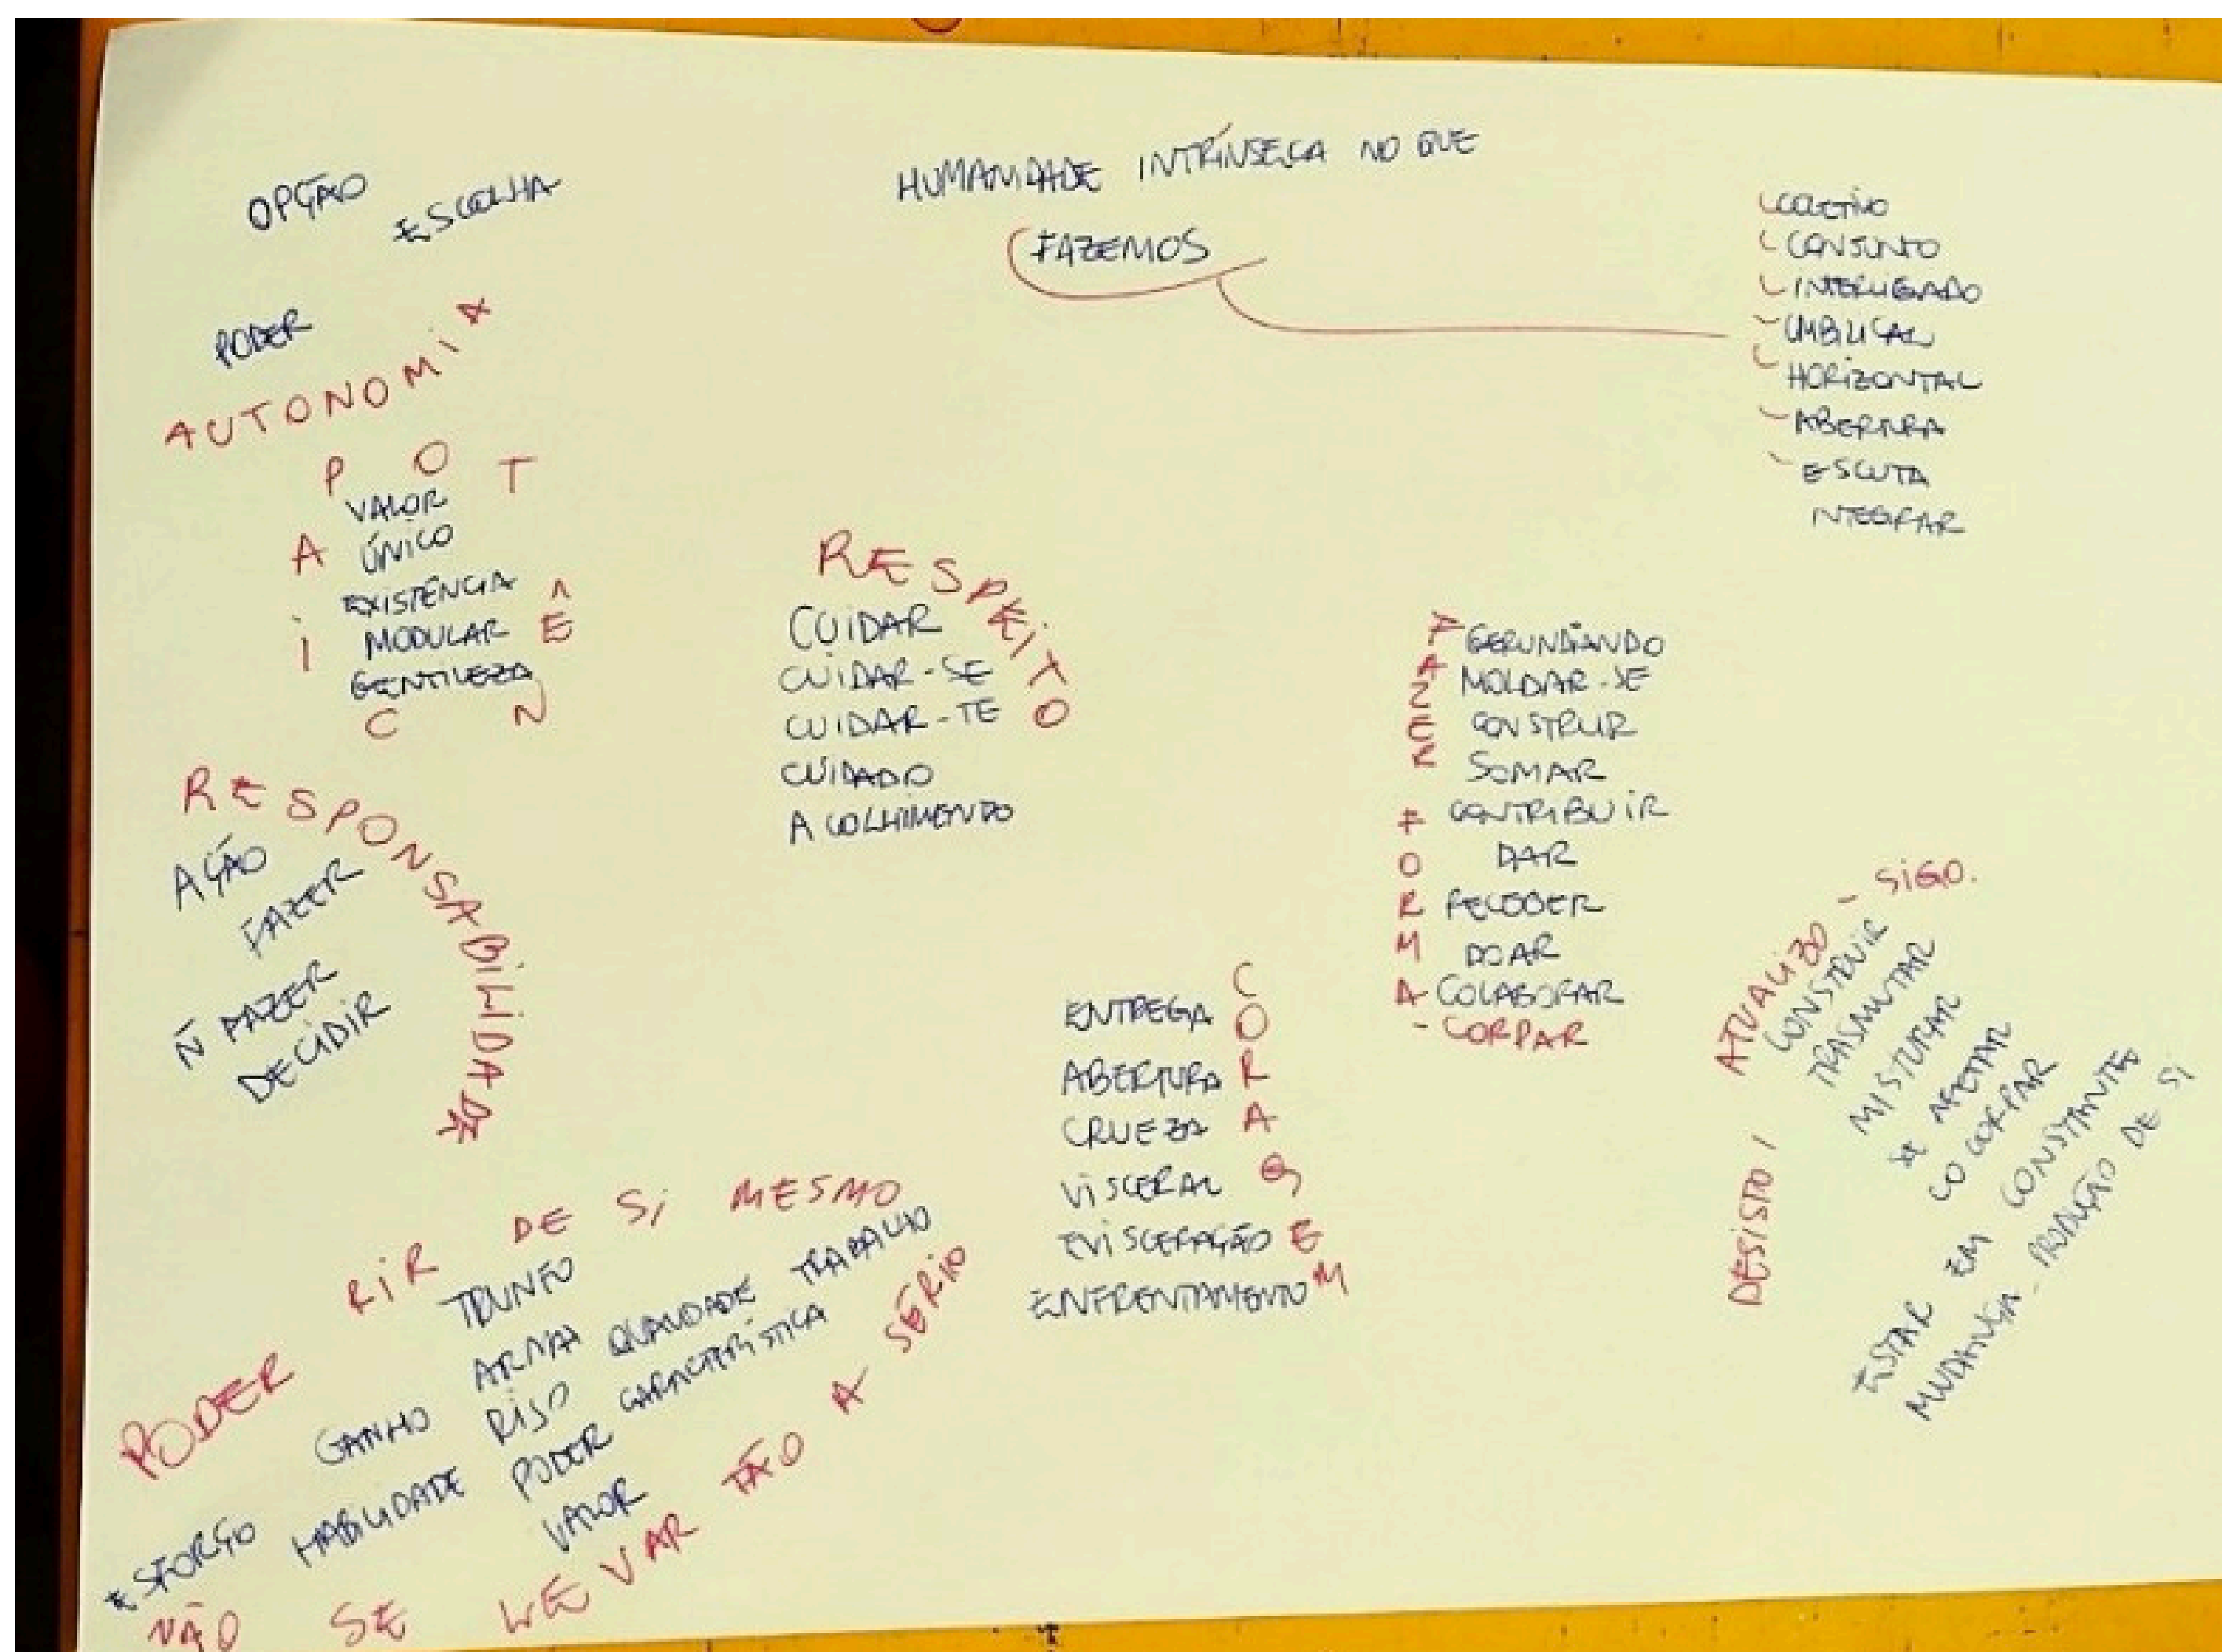 OPÇÃO
ESCOLHA
PODER
AUTONOMIA
POTÊNCIA
VALOR
ÚNICO
EXISTÊNCIA
MODULAR
GENTILEZA
RESPONSABILIDADE
AÇÃO
FAZER
Ñ FAZER
DECIDIR
HUMANIDADE INTRÍNSECA NO QUE
FAZEMOS
COLETIVO
CONJUNTO
INTERLIGADO
UMBILICAL
HORIZONTAL
ABERTURA
ESCUTA
INTEGRAR
RESPEITO
CUIDAR
CUIDAR-SE
CUIDAR-TE
CUIDADO
ACOLHIMENTO
FAZER FORMA
GERUNDIANDO
MOLDAR-SE
CONSTRUIR
SOMAR
CONTRIBUIR
DAR
RECEBER
DOAR
COLABORAR
- CORPAR
CORAGEM
ENTREGA
ABERTURA
CRUEZA
VISCERAL
EVISCERAÇÃO
ENFRENTAMENTO
DESISTO / ATUALIZO - SIGO.
CONSTRUIR
TRASMUTAR
MISTURAR
SE AFETAR
CO CORPAR
ESTAR EM CONSTANTE
MUDANÇA - PRODUÇÃO DE SI
PODER RIR DE SI MESMO
TRUNFO
GANHO ARMA QUALIDADE TRABALHO
RISO
ESFORÇO HABILIDADE PODER CARACTERÍSTICA
VALOR
NÃO SE LEVAR TÃO A SÉRIO